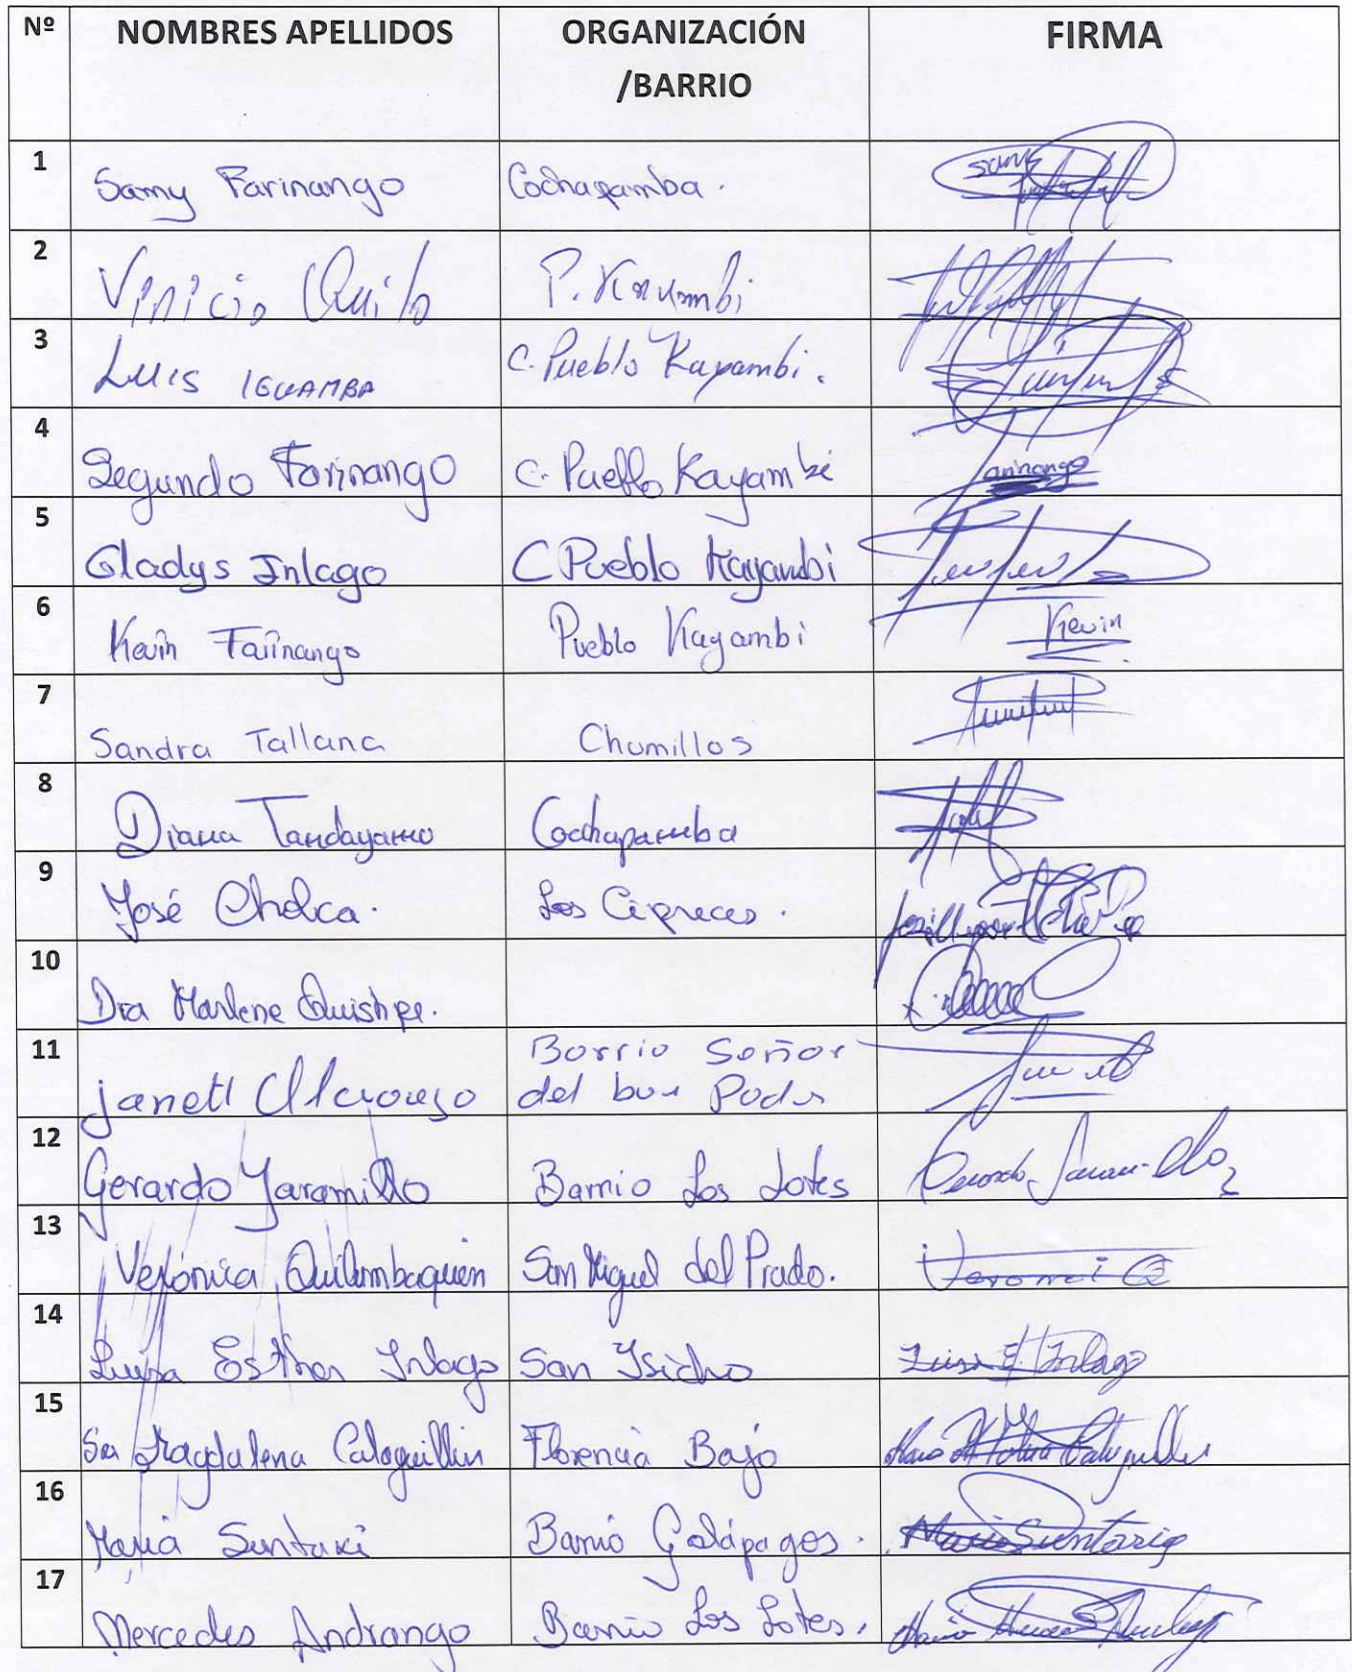 Nº NOMBRES APELLIDOS ORGANIZACIÓN FIRMA
/BARRIO
1 Samy Farinango Cochapamba. Samy
2 Vinicio Quilo P. Kayambi
3 Luis IGUAMBA C. Pueblo Kayambi.
4 Segundo Farinango C. Pueblo Kayambi Farinango
5 Gladys Inlago C Pueblo Kayambi
6 Kevin Farinango Pueblo Kayambi Kevin
7 Sandra Tallana Chumillos
8 Diana Tandayamo Cochapamba
9 José Cholca. Los Cipreces.
10 Dra Marlene Quishpe.
11 Barrio Señor
Janett del buen Poder
12 Gerardo Jaramillo Barrio Los Lotes Gerardo Jaramillo
13 Verónica Quilumbaquin San Miguel del Prado. Veroni Q
14 Luisa Esther Inlago San Isidro Luisa E. Inlago
15 Sra Magdalena Catuguillin Florencia Bajo
16 María Suntaxi Barrio Galápagos. Maria Suntaxig
17 Mercedes Andrango Barrio Los Lotes.